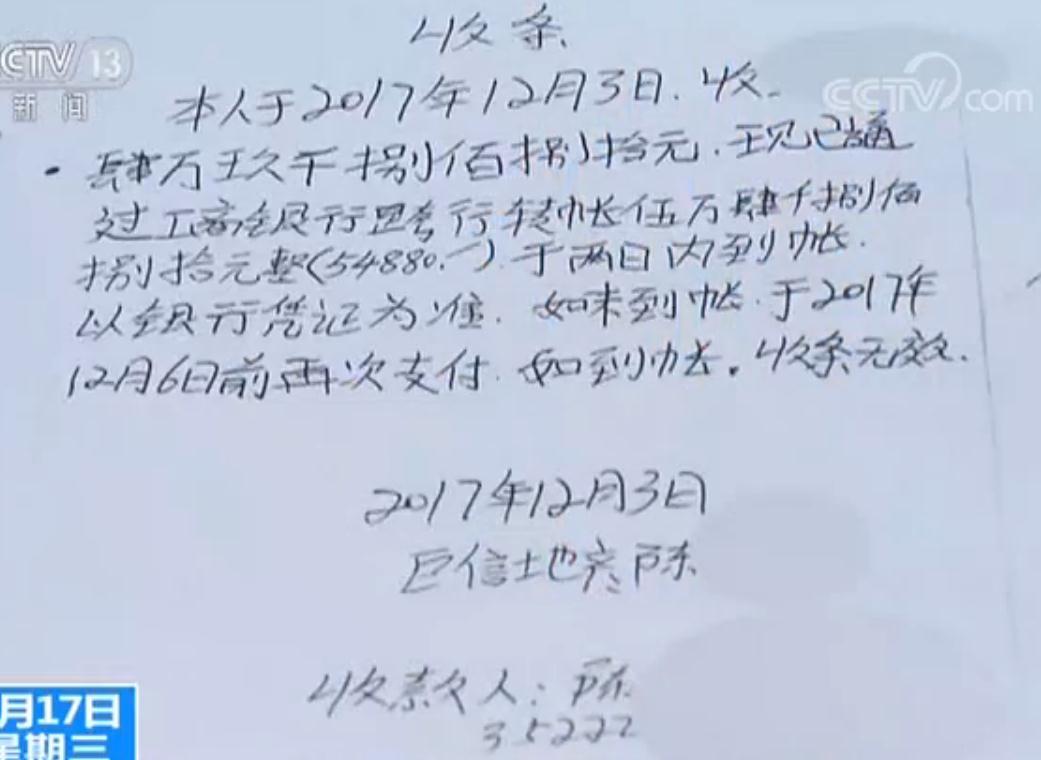 收条
CCTV 13
新闻
CCTV.com
本人于2017年12月3日.收
肆万玖千捌佰捌拾元.现已通
过工商银行跨行转帐伍万肆千捌佰
捌拾元整(54880.-).于两日内到帐.
以银行凭证为准.如未到帐.于2017年
12月6日前再次支付.如到帐.收条无效.
2017年12月3日
巨信地产 陈
收款人：陈
35222
月17日
星期三